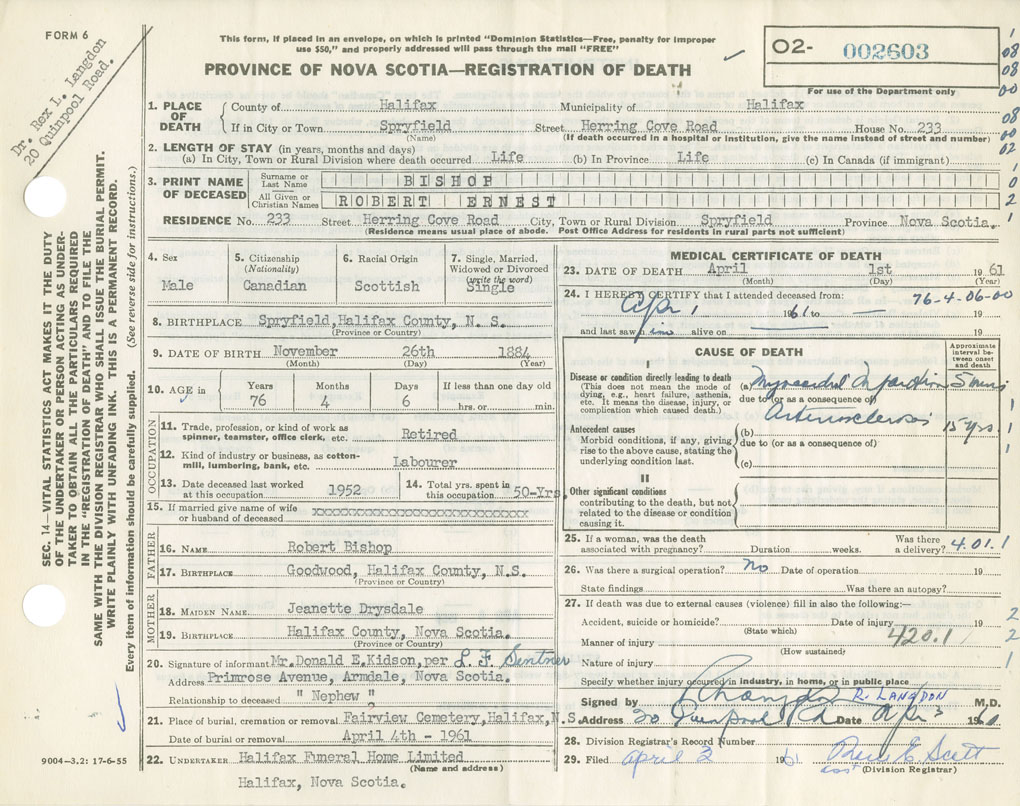 FORM 6
Dr. Rex L. Langdon
20 Quinpool Road.
This form, if placed in an envelope, on which is printed "Dominion Statistics—Free, penalty for improper
use $50," and properly addressed will pass through the mail "FREE"
PROVINCE OF NOVA SCOTIA—REGISTRATION OF DEATH
02- 002603
For use of the Department only
1. PLACE OF DEATH County of Halifax Municipality of Halifax
If in City or Town Spryfield Street Herring Cove Road House No. 233
(Name) (If death occurred in a hospital or institution, give the name instead of street and number)
2. LENGTH OF STAY (in years, months and days)
(a) In City, Town or Rural Division where death occurred Life (b) In Province Life (c) In Canada (if immigrant)
3. PRINT NAME OF DECEASED Surname or Last Name BISHOP
All Given or Christian Names ROBERT ERNEST
RESIDENCE No. 233 Street Herring Cove Road City, Town or Rural Division Spryfield Province Nova Scotia.
(Residence means usual place of abode. Post Office Address for residents in rural parts not sufficient)
SEC. 14—VITAL STATISTICS ACT MAKES IT THE DUTY
OF THE UNDERTAKER OR PERSON ACTING AS UNDER-
TAKER TO OBTAIN ALL THE PARTICULARS REQUIRED
IN THE "REGISTRATION OF DEATH" AND TO FILE THE
SAME WITH THE DIVISION REGISTRAR WHO SHALL ISSUE THE BURIAL PERMIT.
WRITE PLAINLY WITH UNFADING INK. THIS IS A PERMANENT RECORD.
Every item of information should be carefully supplied. (See reverse side for instructions.)
4. Sex
Male
5. Citizenship
(Nationality)
Canadian
6. Racial Origin
Scottish
7. Single, Married,
Widowed or Divorced
(write the word)
Single
8. BIRTHPLACE Spryfield, Halifax County, N. S.
(Province or Country)
9. DATE OF BIRTH November 26th 1884
(Month) (Day) (Year)
10. AGE in Years Months Days If less than one day old
76 4 6 hrs. or min.
OCCUPATION
11. Trade, profession, or kind of work as
spinner, teamster, office clerk, etc. Retired
12. Kind of industry or business, as cotton-
mill, lumbering, bank, etc. Labourer
13. Date deceased last worked
at this occupation 1952
14. Total yrs. spent in
this occupation 50-Yrs.
15. If married give name of wife
or husband of deceased xxxxxxxxxxxxxxxxxxxxxxxxxxxx
FATHER
16. NAME Robert Bishop
17. BIRTHPLACE Goodwood, Halifax County, N.S.
(Province or Country)
MOTHER
18. MAIDEN NAME Jeanette Drysdale
19. BIRTHPLACE Halifax County, Nova Scotia.
(Province or Country)
20. Signature of informant Mr. Donald E. Kidson, per L. F.
Address Primrose Avenue, Armdale, Nova Scotia.
Relationship to deceased " Nephew "
21. Place of burial, cremation or removal Fairview Cemetery, Halifax, N.S.
Date of burial or removal April 4th - 1961
22. UNDERTAKER Halifax Funeral Home Limited
(Name and address)
Halifax, Nova Scotia.
9004—3.2: 17-6-55
MEDICAL CERTIFICATE OF DEATH
23. DATE OF DEATH April 1st 1961
(Month) (Day) (Year)
24. I HEREBY CERTIFY that I attended deceased from: 76-4-06-00
Apr 1 1961 to — 19
and last saw him alive on 19
CAUSE OF DEATH
Approximate interval between onset and death
I
Disease or condition directly leading to death
(This does not mean the mode of
dying, e.g., heart failure, asthenia,
etc. It means the disease, injury, or
complication which caused death.)
(a) Myocardial Infarction 5 mins
due to (or as a consequence of)
Arteriosclerosis
Antecedent causes
Morbid conditions, if any, giving
rise to the above cause, stating the
underlying condition last.
(b) 15 yrs
due to (or as a consequence of)
(c)
II
Other significant conditions
contributing to the death, but not
related to the disease or condition
causing it.
25. If a woman, was the death
associated with pregnancy? Duration weeks. Was there
a delivery? 4.01.1
26. Was there a surgical operation? No Date of operation 19
State findings Was there an autopsy?
27. If death was due to external causes (violence) fill in also the following:—
Accident, suicide or homicide? Date of injury 19
(State which)
Manner of injury 420.1
(How sustained)
Nature of injury
Specify whether injury occurred in industry, in home, or in public place
Signed by R. LANGDON M.D.
Address 20 Quinpool Rd Date Apr 3 1961
28. Division Registrar's Record Number
29. Filed April 3 1961 Scott
(Division Registrar)